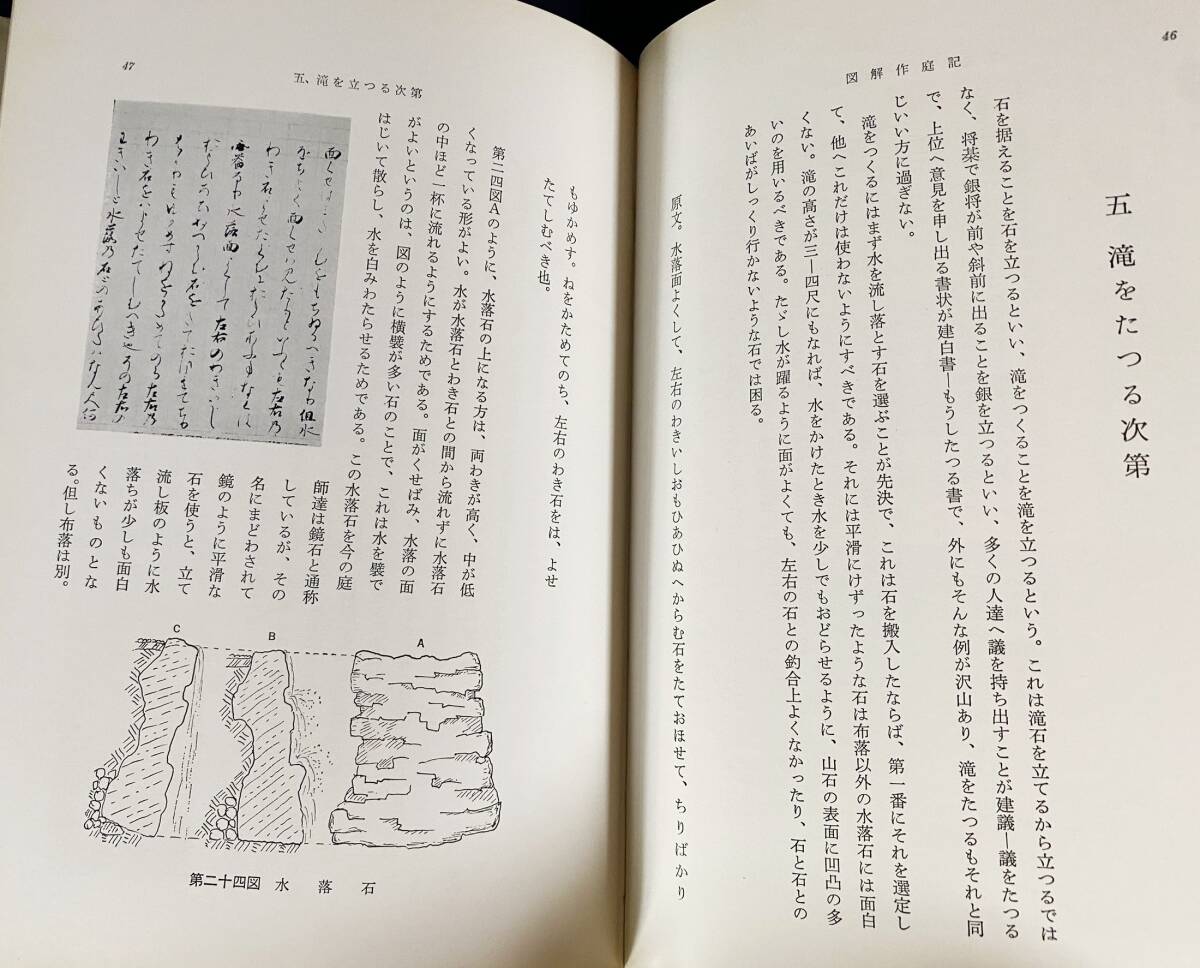 46
図解作庭記
五 滝をたつる次第
石を据えることを石を立つるといい、滝をつくることを滝を立つるという。これは滝石を立てるから立つるでは
なく、将棊で銀将が前や斜前に出ることを銀を立つるといい、多くの人達へ議を持ち出すことが建議―議をたつる
で、上位へ意見を申し出る書状が建白書―もうしたつる書で、外にもそんな例が沢山あり、滝をたつるもそれと同
じいい方に過ぎない。
滝をつくるにはまず水を流し落とす石を選ぶことが先決で、これは石を搬入したならば、第一番にそれを選定し
て、他へこれだけは使わないようにすべきである。それには平滑にけずったような石は布落以外の水落石には面白
くない。滝の高さが三―四尺にもなれば、水をかけたとき水を少しでもおどらせるように、山石の表面に凹凸の多
いのを用いるべきである。たゞし水が躍るように面がよくても、左右の石との釣合上よくなかったり、石と石との
あいばがしっくり行かないような石では困る。
原文。水落面よくして、左右のわきいしおもひあひぬへからむ石をたておほせて、ちりばかり
47
五、滝を立つる次第
もゆかめす。ねをかためてのち、左右のわき石をは、よせ
たてしむべき也。
第二四図Aのように、水落石の上になる方は、両わきが高く、中が低
くなっている形がよい。水が水落石とわき石との間から流れずに水落石
の中ほど一杯に流れるようにするためである。面がくせばみ、水落の面
がよいというのは、図のように横襞が多い石のことで、これは水を襞で
はじいて散らし、水を白みわたらせるためである。この水落石を今の庭
師達は鏡石と通称
しているが、その
名にまどわされて
鏡のように平滑な
石を使うと、立て
流し板のように水
落ちが少しも面白
くないものとな
る。但し布落は別。
C
B
A
第二十四図 水落石